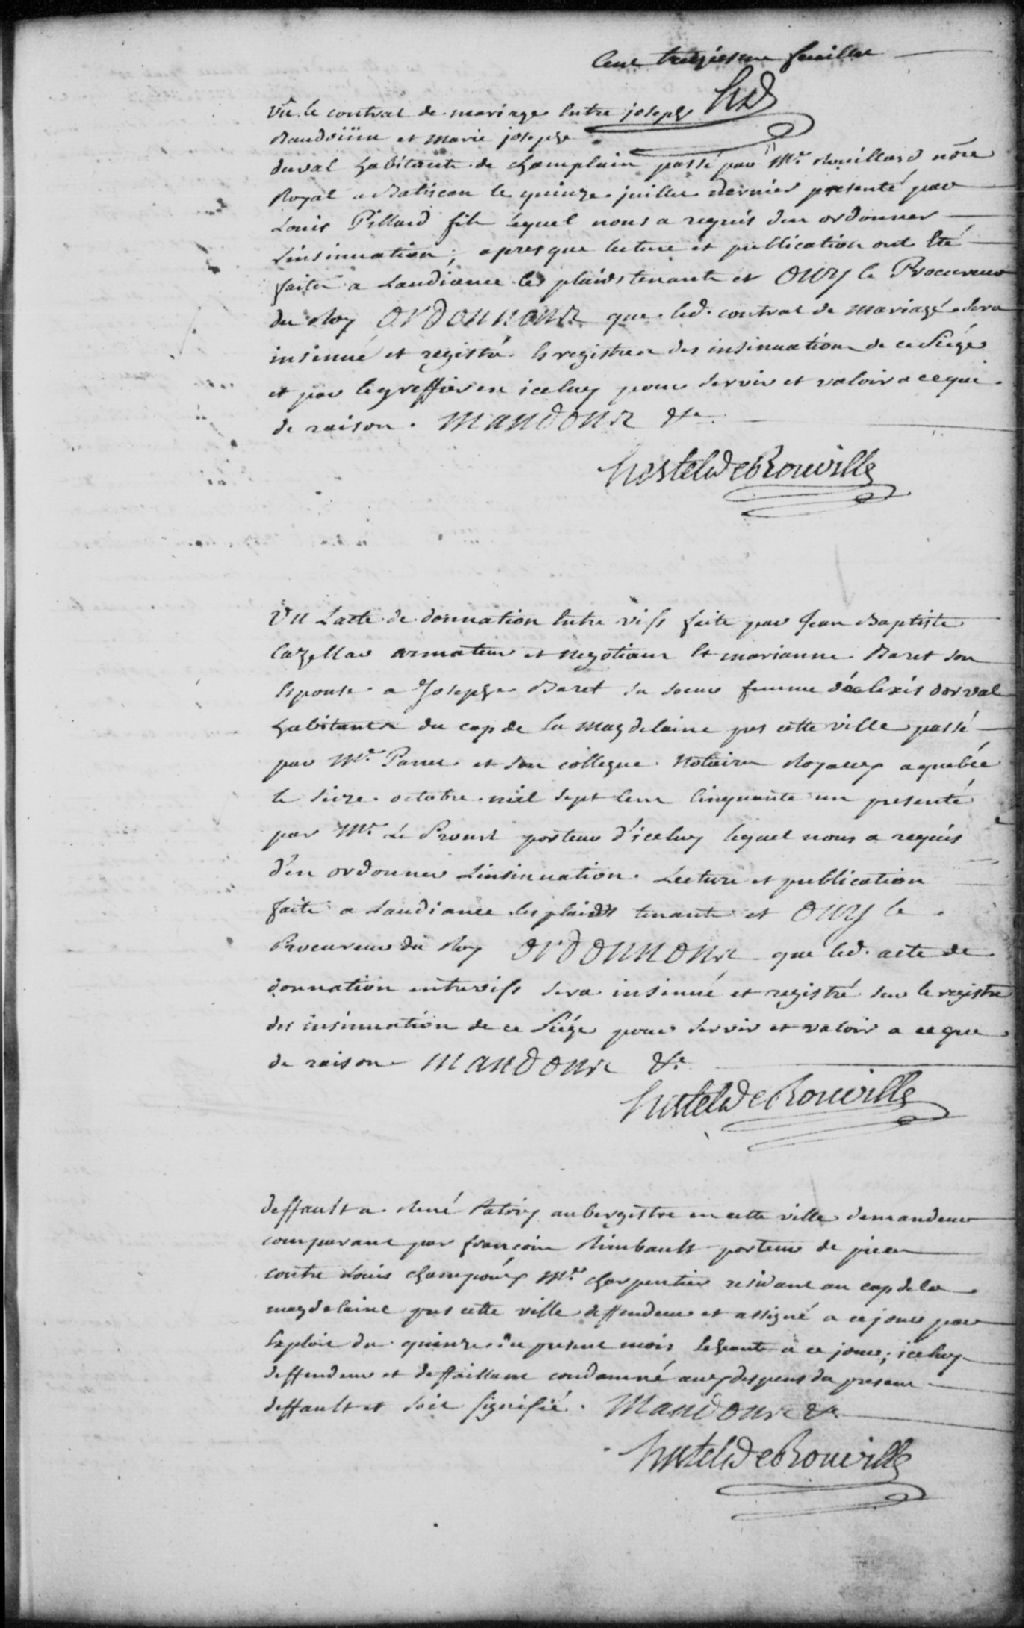 Cent treiziesme feuillet
Vû le contrat de mariage Entre joseph
Baudoüin et marie josephe
duval habitants de champlain passé par Mr. Rouillard nore
Royal a Batiscan le quinze juillet dernier presenté par
Louis Pillard fils lequel nous a requis d'en ordonner
Linsinuation, apres que lecture et publication ont Eté
faite a Laudiance les plaids tenants et Ouy le Procureur
du Roy Ordonnons que led. contrat de mariage sera
insinué et registré Es registres des insinuations de ce Siége
et par le greffier en iceluy pour servir et valoir a ce que
de raison. Mandons &c
hertel de Rouville
Vu Lacte de donnation Entre vifs faite par Jean Baptiste
Cazellar armateur et negotiant Et marianne Baret son
Epouse a Josephe Baret sa soeur femme d'alexis dorval
habitants du cap de la Magdelaine pres cette ville passé
par Mr. Panet et son collegue Notaires Royaux a quebec
le seize octobre mil sept Cent Cinquante un presenté
par Mr. Le Proust porteur d'iceluy lequel nous a requis
d'en ordonner Linsinuation. Lecture et publication
faite a Laudiance les plaids tenants et Ouy le
Procureur du Roy Ordonnons que led. acte de
donnation entrevifs sera insinué et registré sur le registre
des insinuation de ce Siége pour servir et valoir a ce que
de raison Mandons &c
hertel de Rouville
deffault a René aubergistre en cette ville demandeur
comparant par françois Rimbault porteur de pieces
contre Louis Mre. charpentier residant au cap de la
magdelaine pres cette ville deffendeur et assigné a ce jour par
Exploit du quinze du present mois Echeante a ce jour; iceluy
deffendeur et deffaillant condamné aux despens du present
deffault et soit signifié. Mandons &c
hertel de Rouville